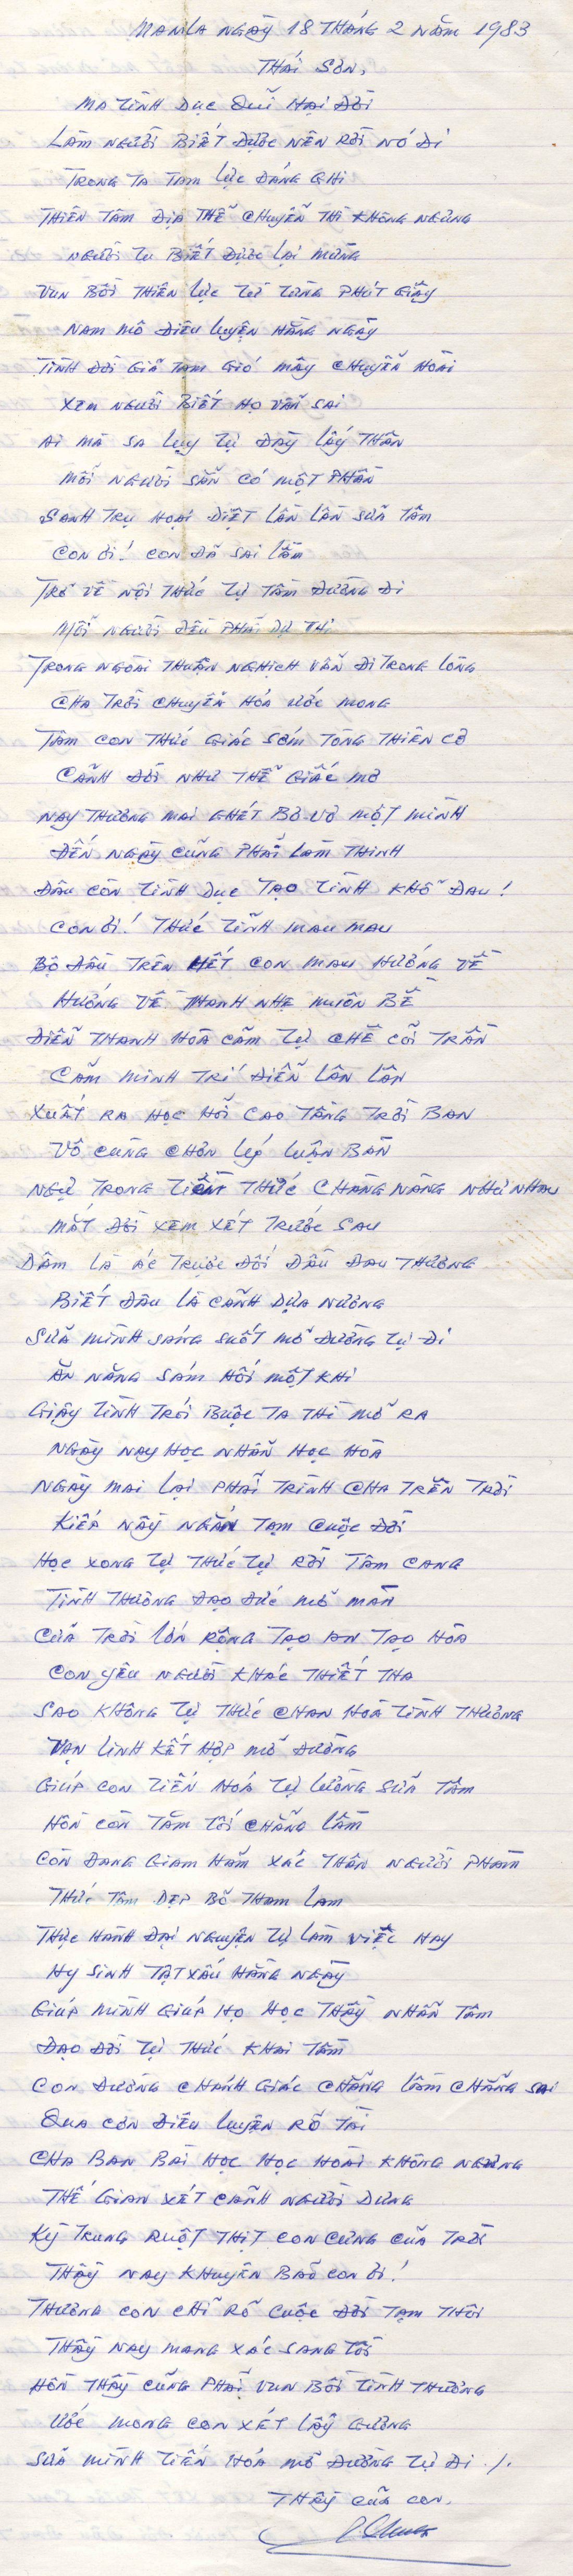 MANILA NGÀY 18 THÁNG 2 NĂM 1983
THÁI SƠN,
MA TÌNH DỤC QUỈ HẠI ĐỜI
LÀM NGƯỜI BIẾT ĐƯỢC NÊN RỜI NÓ ĐI
TRONG TA TAM LỰC ĐÁNG GHI
THIÊN TÂM ĐỊA THỂ CHUYỂN THÌ KHÔNG NGỪNG
NGƯỜI TU BIẾT ĐƯỢC LẠI MỪNG
VUN BỒI THIÊN LỰC TỪ TỪNG PHÚT GIÂY
NAM MÔ ĐIÊU LUYỆN HẰNG NGÀY
TÌNH ĐỜI GIẢ TẠM GIÓ MÂY CHUYỂN HOÀI
XEM NGƯỜI BIẾT HỌ VẪN SAI
AI MÀ SA LỤY TỰ ĐÀY LẤY THÂN
MỖI NGƯỜI SẴN CÓ MỘT PHẦN
SANH TRỤ HOẠI DIỆT LẦN LẦN SỬA TÂM
CON ƠI! CON ĐÃ SAI LẦM
TRỞ VỀ NỘI THỨC TỰ TẦM ĐƯỜNG ĐI
MỖI NGƯỜI ĐỀU PHẢI DỰ THI
TRONG NGOÀI THUẬN NGHỊCH VẪN ĐI TRONG LÒNG
CHA TRỜI CHUYỂN HÓA ƯỚC MONG
TÂM CON THỨC GIÁC SỚM TÒNG THIÊN CƠ
CẢNH ĐỜI NHƯ THỂ GIẤC MƠ
NAY THƯƠNG MAI GHÉT BƠ VƠ MỘT MÌNH
ĐẾN NGÀY CŨNG PHẢI LÀM THINH
ĐÂU CÒN TÌNH DỤC TẠO TÌNH KHỔ ĐAU!
CON ƠI! THỨC TỈNH MAU MAU
BỘ ĐẦU TRÊN HẾT CON MAU HƯỚNG VỀ
HƯỚNG VỀ THANH NHẸ MUÔN BỀ
ĐIỂN THANH HÒA CẢM TỰ CHÊ CÕI TRẦN
CẢM MINH TRÍ ĐIỂN LÂN LÂN
XUẤT RA HỌC HỎI CAO TẦNG TRỜI BAN
VÔ CÙNG CHƠN LÝ LUẬN BÀN
NGỰ TRONG TIỀM THỨC CHÀNG NÀNG NHƯ NHAU
MẮT ĐỜI XEM XÉT TRƯỚC SAU
DÂM LÀ ÁC TRƯỢC ĐỐI ĐẦU ĐAU THƯƠNG
BIẾT ĐÂU LÀ CẢNH DỰA NƯƠNG
SỬA MÌNH SÁNG SUỐT MỞ ĐƯỜNG TỰ ĐI
ĂN NĂNG SÁM HỐI MỘT KHI
GIÂY TÌNH TRÓI BUỘC TA THÌ MỞ RA
NGÀY NAY HỌC NHẪN HỌC HÒA
NGÀY MAI LẠI PHẢI TRÌNH CHA TRÊN TRỜI
KIẾP NẦY NGẮN TẠM CUỘC ĐỜI
HỌC XONG TỰ THỨC TỰ RỜI TÂM CANG
TÌNH THƯƠNG ĐẠO ĐỨC MỞ MÀN
CỦA TRỜI LỚN RỘNG TẠO AN TẠO HÒA
CON YÊU NGƯỜI KHÁC THIẾT THA
SAO KHÔNG TỰ THỨC CHAN HOÀ TÌNH THƯƠNG
VẠN LINH KẾT HỢP MỞ ĐƯỜNG
GIÚP CON TIẾN HOÁ TỰ LƯỜNG SỬA TÂM
HỒN CÒN TĂM TỐI CHẲNG LẦM
CÒN ĐANG GIAM HÃM XÁC THÂN NGƯỜI PHÀM
THỨC TÂM DẸP BỎ THAM LAM
THỰC HÀNH ĐẠI NGUYỆN TỰ LÀM VIỆC HAY
HY SINH TẬT XẤU HẰNG NGÀY
GIÚP MÌNH GIÚP HỌ HỌC THẦY NHẪN TÂM
ĐẠO ĐỜI TỰ THỨC KHAI TÂM
CON ĐƯỜNG CHÁNH GIÁC CHẲNG LẦM CHẲNG SAI
QUA CƠN ĐIÊU LUYỆN RÕ TÀI
CHA BAN BÀI HỌC HỌC HOÀI KHÔNG NGỪNG
THẾ GIAN XÉT CẢNH NGƯỜI DƯNG
KỲ TRUNG RUỘT THỊT CON CƯNG CỦA TRỜI
THẦY NAY KHUYÊN BẢO CON ƠI!
THƯƠNG CON CHỈ RÕ CUỘC ĐỜI TẠM THÔI
THẦY NAY MANG XÁC SANG TỒI
HỒN THẦY CŨNG PHẢI VUN BỒI TÌNH THƯƠNG
ƯỚC MONG CON XÉT LẤY GƯƠNG
SỬA MÌNH TIẾN HÓA MỞ ĐƯỜNG TỰ ĐI ./.
THẦY CỦA CON,